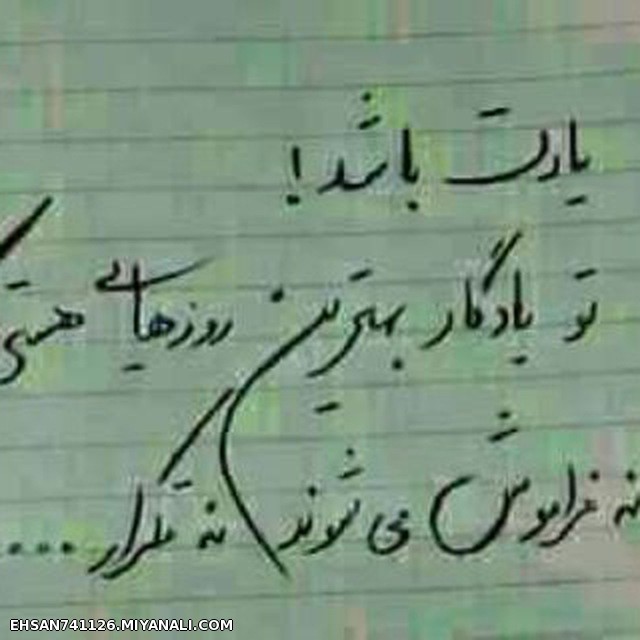 یادت باشد!
تو یادگار بهترین روزهایی هستی که
نه فراموش می شوند نه تکرار....
EHSAN741126.MIYANALI.COM